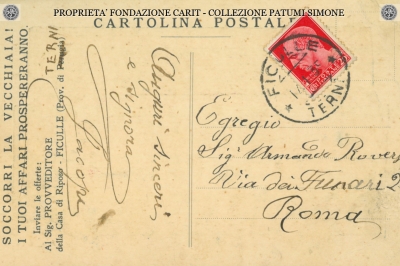 PROPRIETA' FONDAZIONE CARIT - COLLEZIONE PATUMI SIMONE
CARTOLINA POSTALE
SOCCORRI LA VECCHIAIA!
I TUOI AFFARI PROSPERERANNO.
Inviare le offerte:
Al Sig. PROVVEDITORE
della Casa di Riposo - FICULLE (Prov. di Perugia)
TERNI
Auguri sinceri
e signora
Jacopi
FICULLE
TERNI
Egregio
Sig. Armando Rovers
Via dei Funari 2
Roma